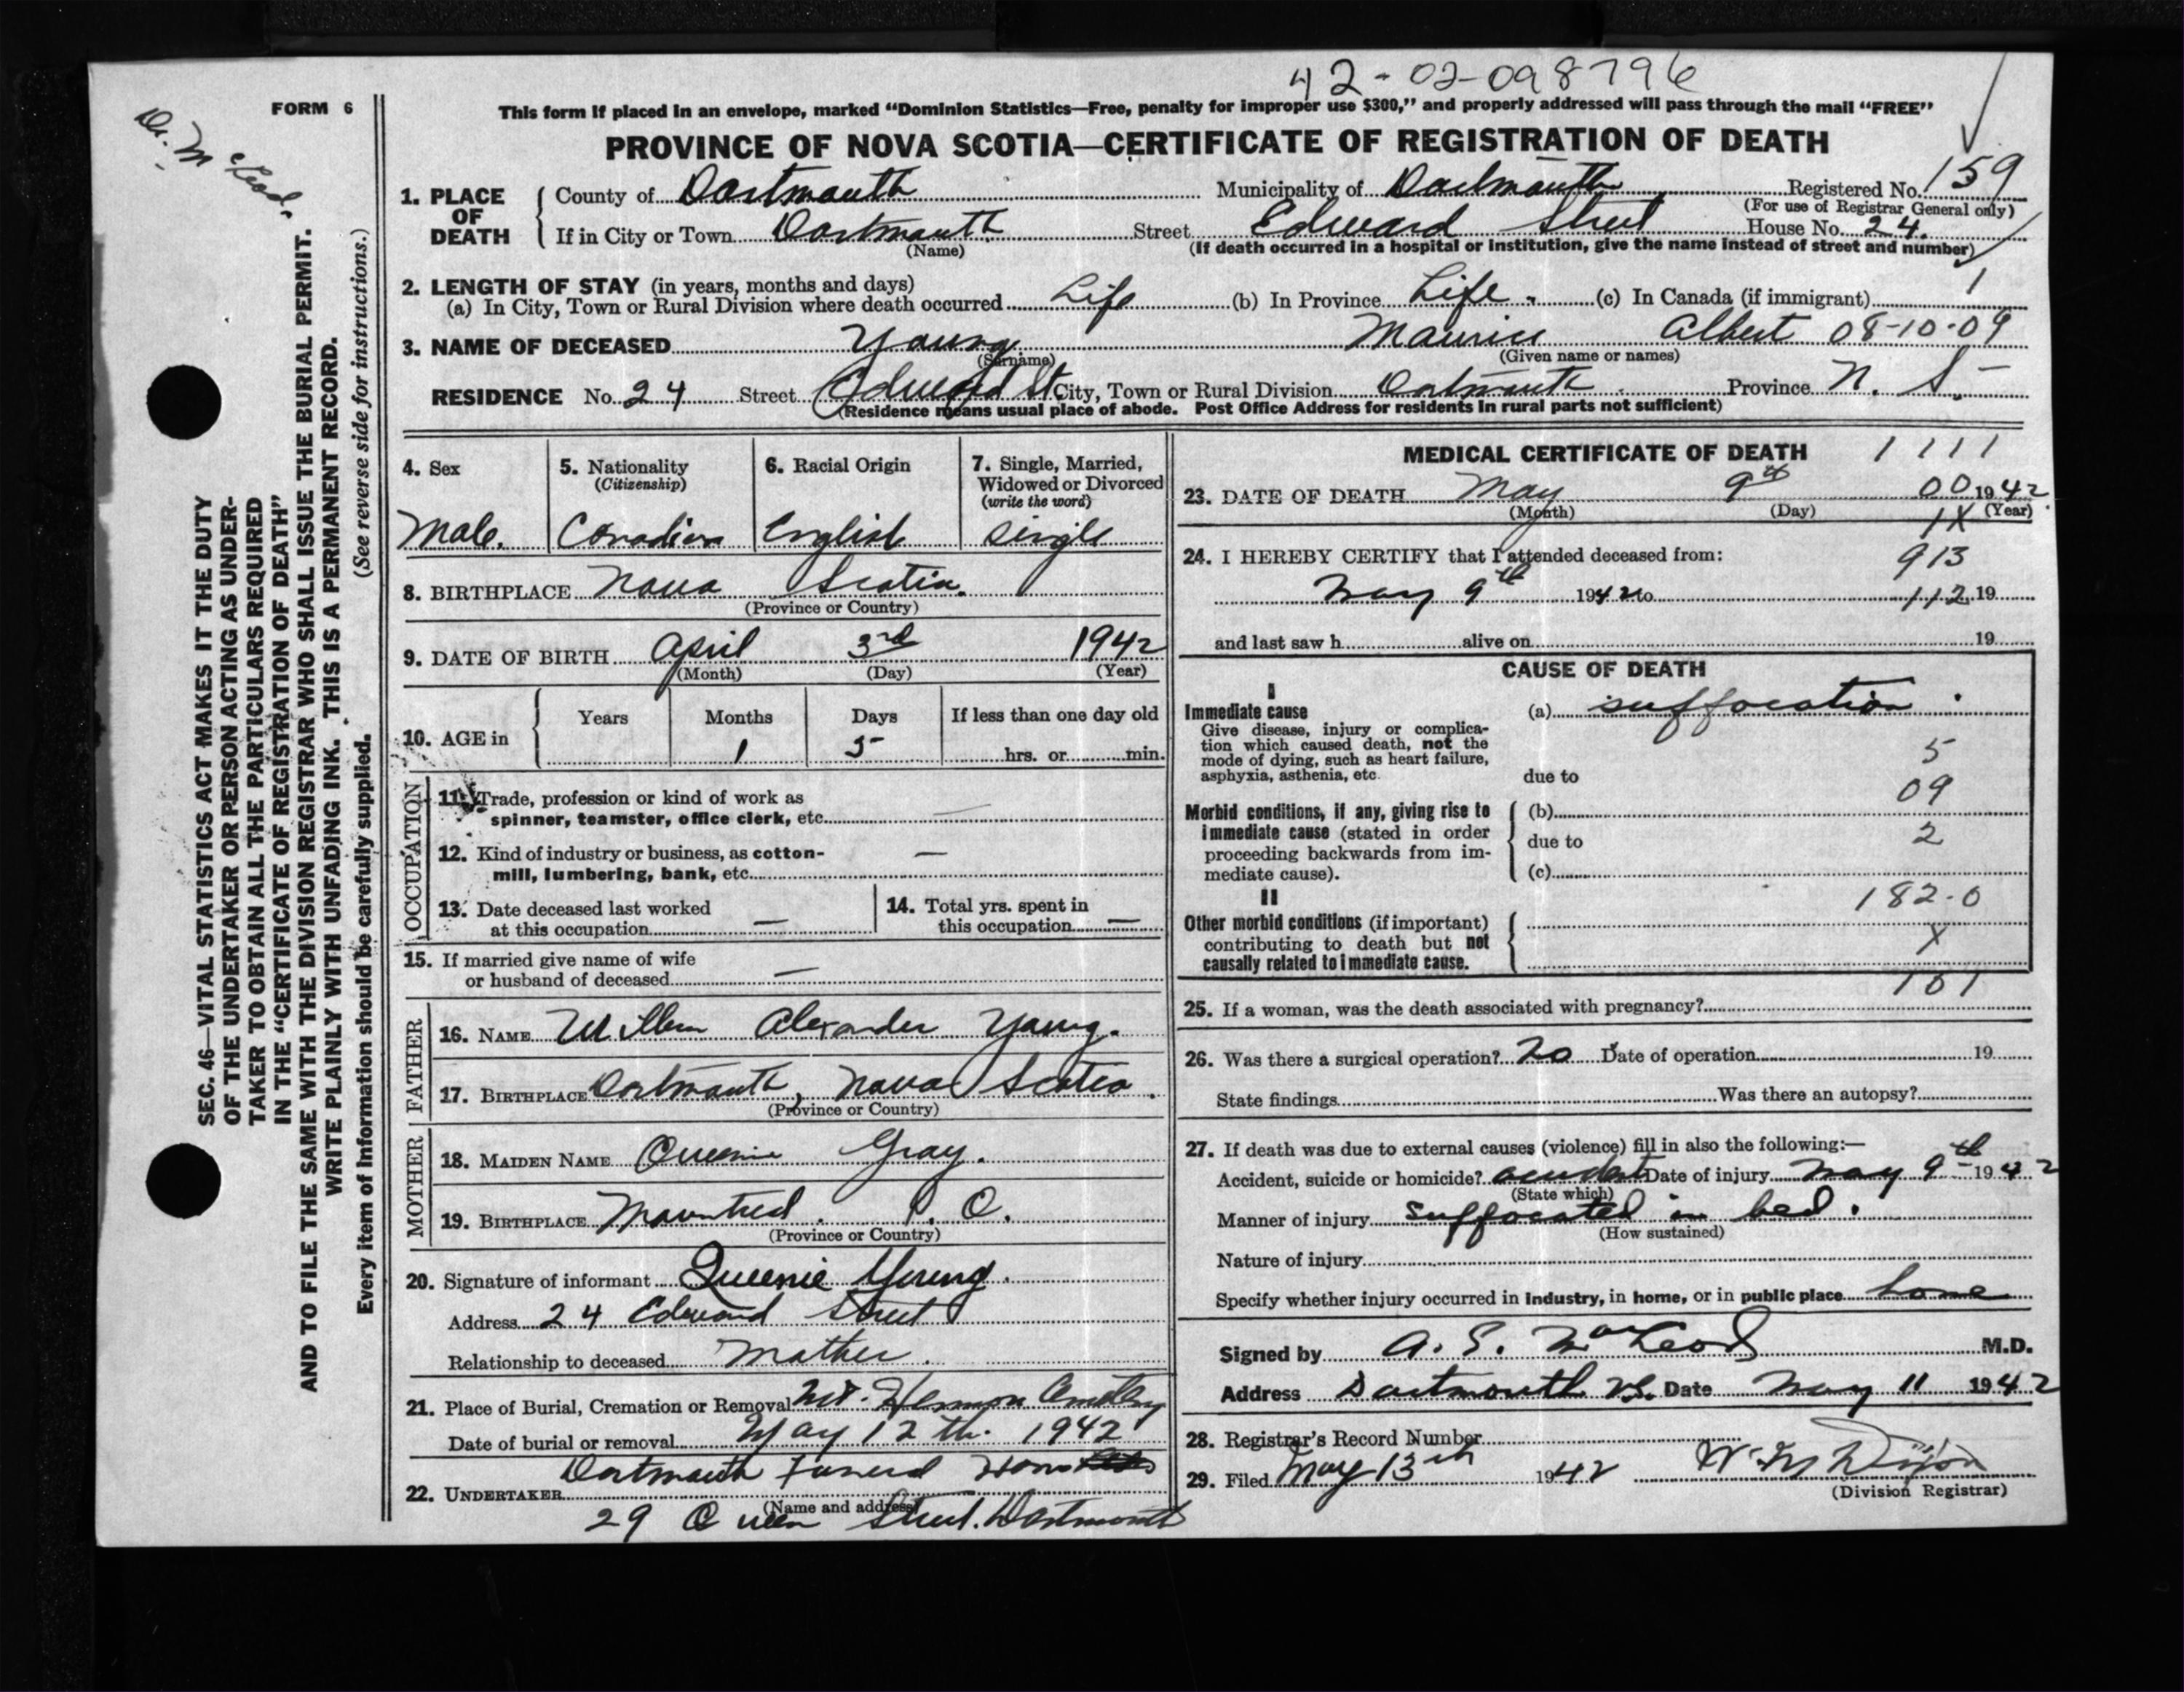 42-02-098796
FORM 6
Dr. McLeod.
This form if placed in an envelope, marked “Dominion Statistics—Free, penalty for improper use $300,” and properly addressed will pass through the mail “FREE”
PROVINCE OF NOVA SCOTIA—CERTIFICATE OF REGISTRATION OF DEATH
1. PLACE OF DEATH County of Dartmouth Municipality of Dartmouth Registered No. 159
(For use of Registrar General only)
If in City or Town Dartmouth Street Edward Street House No. 24.
(Name) (If death occurred in a hospital or institution, give the name instead of street and number)
2. LENGTH OF STAY (in years, months and days)
(a) In City, Town or Rural Division where death occurred Life (b) In Province Life. (c) In Canada (if immigrant) 1
3. NAME OF DECEASED Young Maurice Albert 08-10-09
(Surname) (Given name or names)
RESIDENCE No. 24 Street Edward St City, Town or Rural Division Dartmouth Province N. S.
(Residence means usual place of abode. Post Office Address for residents in rural parts not sufficient)
4. Sex 5. Nationality (Citizenship) 6. Racial Origin 7. Single, Married, Widowed or Divorced (write the word)
Male. Canadian English Single
8. BIRTHPLACE Nova Scotia.
(Province or Country)
9. DATE OF BIRTH April 3rd 1942
(Month) (Day) (Year)
10. AGE in Years Months Days If less than one day old
1 5 hrs. or min.
OCCUPATION
11. Trade, profession or kind of work as
spinner, teamster, office clerk, etc. —
12. Kind of industry or business, as cotton- —
mill, lumbering, bank, etc.
13. Date deceased last worked 14. Total yrs. spent in
at this occupation — this occupation —
15. If married give name of wife
or husband of deceased —
FATHER
16. NAME William Alexander Young.
17. BIRTHPLACE Dartmouth, Nova Scotia.
(Province or Country)
MOTHER
18. MAIDEN NAME Queenie Gray.
19. BIRTHPLACE Montreal. P. Q.
(Province or Country)
20. Signature of informant Queenie Young.
Address 24 Edward Street
Relationship to deceased Mother.
21. Place of Burial, Cremation or Removal Mt. Hermon Cemetery
Date of burial or removal May 12th. 1942
22. UNDERTAKER Dartmouth Funeral Home
(Name and address)
29 Queen Street. Dartmouth
MEDICAL CERTIFICATE OF DEATH 1111
23. DATE OF DEATH May 9th 00 1942
(Month) (Day) (Year)
1X
24. I HEREBY CERTIFY that I attended deceased from: 913
May 9th 1942 to 112 19
and last saw h alive on 19
CAUSE OF DEATH
I
Immediate cause (a) suffocation.
Give disease, injury or complica-
tion which caused death, not the
mode of dying, such as heart failure,
asphyxia, asthenia, etc. due to
5
09
Morbid conditions, if any, giving rise to (b)
immediate cause (stated in order due to 2
proceeding backwards from im-
mediate cause). (c)
II 182-0
Other morbid conditions (if important)
contributing to death but not X
causally related to immediate cause.
101
25. If a woman, was the death associated with pregnancy?
26. Was there a surgical operation? No Date of operation 19
State findings Was there an autopsy?
27. If death was due to external causes (violence) fill in also the following:—
Accident, suicide or homicide? accident Date of injury May 9th 1942
(State which)
Manner of injury Suffocated in bed.
(How sustained)
Nature of injury
Specify whether injury occurred in industry, in home, or in public place home
Signed by A. S. MacLeod M.D.
Address Dartmouth N.S. Date May 11 1942
28. Registrar's Record Number
29. Filed May 13th 1942 W. M. Dixon
(Division Registrar)
SEC. 46—VITAL STATISTICS ACT MAKES IT THE DUTY
OF THE UNDERTAKER OR PERSON ACTING AS UNDER-
TAKER TO OBTAIN ALL THE PARTICULARS REQUIRED
IN THE “CERTIFICATE OF REGISTRATION OF DEATH”
AND TO FILE THE SAME WITH THE DIVISION REGISTRAR WHO SHALL ISSUE THE BURIAL PERMIT.
WRITE PLAINLY WITH UNFADING INK. THIS IS A PERMANENT RECORD.
Every item of information should be carefully supplied. (See reverse side for instructions.)